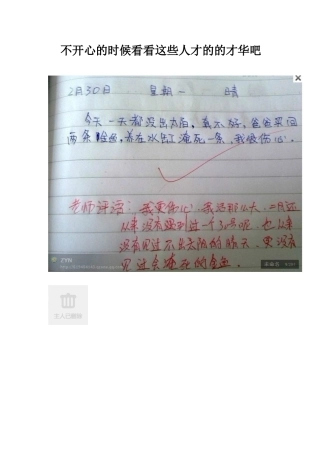 不开心的时候看看这些人才的的才华吧
2月30日 星期一 晴
今天一天都没出太阳，真不好，爸爸买回
两条金鱼，养在水里淹死一条，我很伤心。
老师评语：我更伤心，我活那么大，二月还
从来没有遇到过一个30号呢，也从来
没有见过不出太阳的晴天，更没有
见过会淹死的金鱼
本人已删除